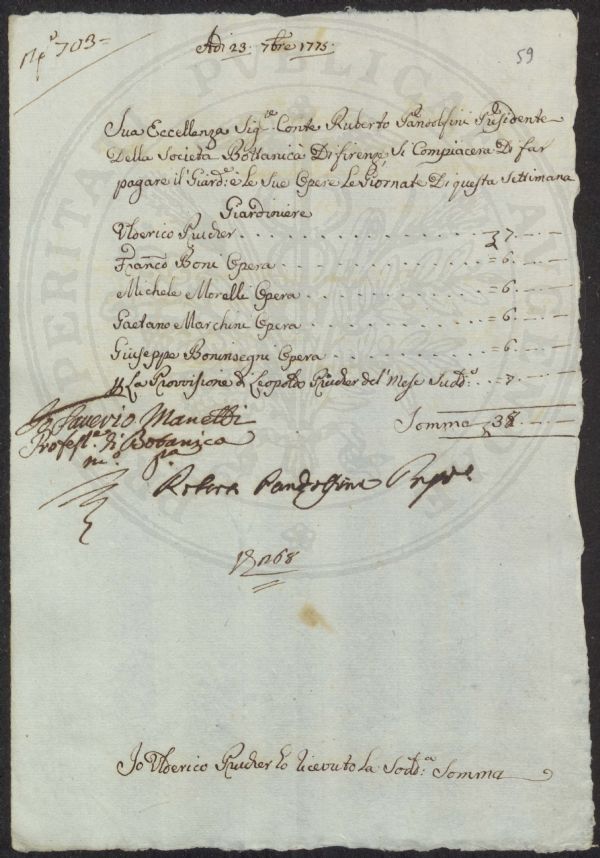 Nº 703=
Adi 23. 7bre 1775.
59
Sua Eccellenza Sigre Conte Ruberto Pandolfini Presidente
Della Società Bottanica Di firenze, Si Compiacera Di far
pagare il Giardre e le Sue Opere Le Giornate Di questa Settimana
Giardiniere
Ulderico Prucher . . . . . . . . . . . . . . £ 7. — . —
Franco Boni Opera . . . . . . . . . . . . = 6. — . —
Michele Morelli Opera . . . . . . . . . = 6. — . —
Gaetano Marchini Opera . . . . . . . . = 6. — . —
Giuseppe Boninsegni Opera . . . . . . = 6. — . —
La Provvisione di Leopoldo Prucher del' Mese Suddo . . = 7. — . —
Somma £ 38. — . —
Io Saverio Manetti
Profesre di Botanica
mo pia
Roberto Pandolfini Presidte
1268
Io Ulderico Prucher ho ricevuto La Sodda Somma
PERITAM PUBLICA